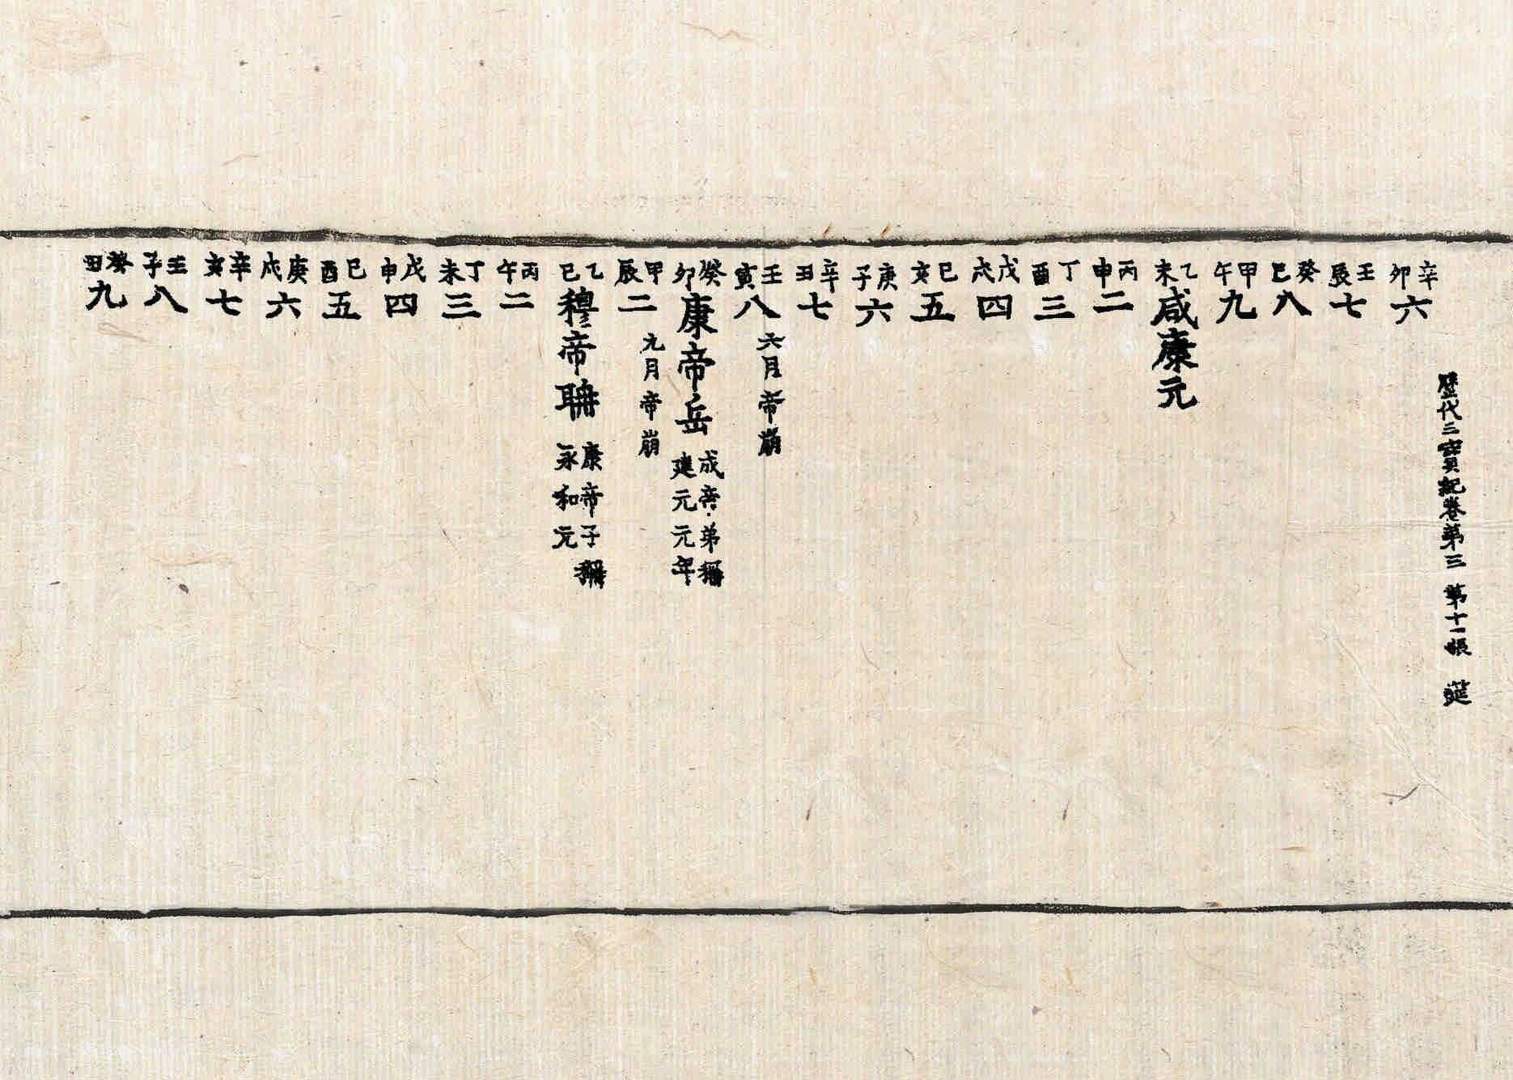 歷代三寶紀卷第三 第十一張 莚
辛卯 六
壬辰 七
癸巳 八
甲午 九
乙未 咸康元
丙申 二
丁酉 三
戊戌 四
己亥 五
庚子 六
辛丑 七
壬寅 八 六月帝崩
癸卯 康帝岳 成帝弟稱建元元年
甲辰 二 九月帝崩
乙巳 穆帝聃 康帝子稱永和元
丙午 二
丁未 三
戊申 四
己酉 五
庚戌 六
辛亥 七
壬子 八
癸丑 九